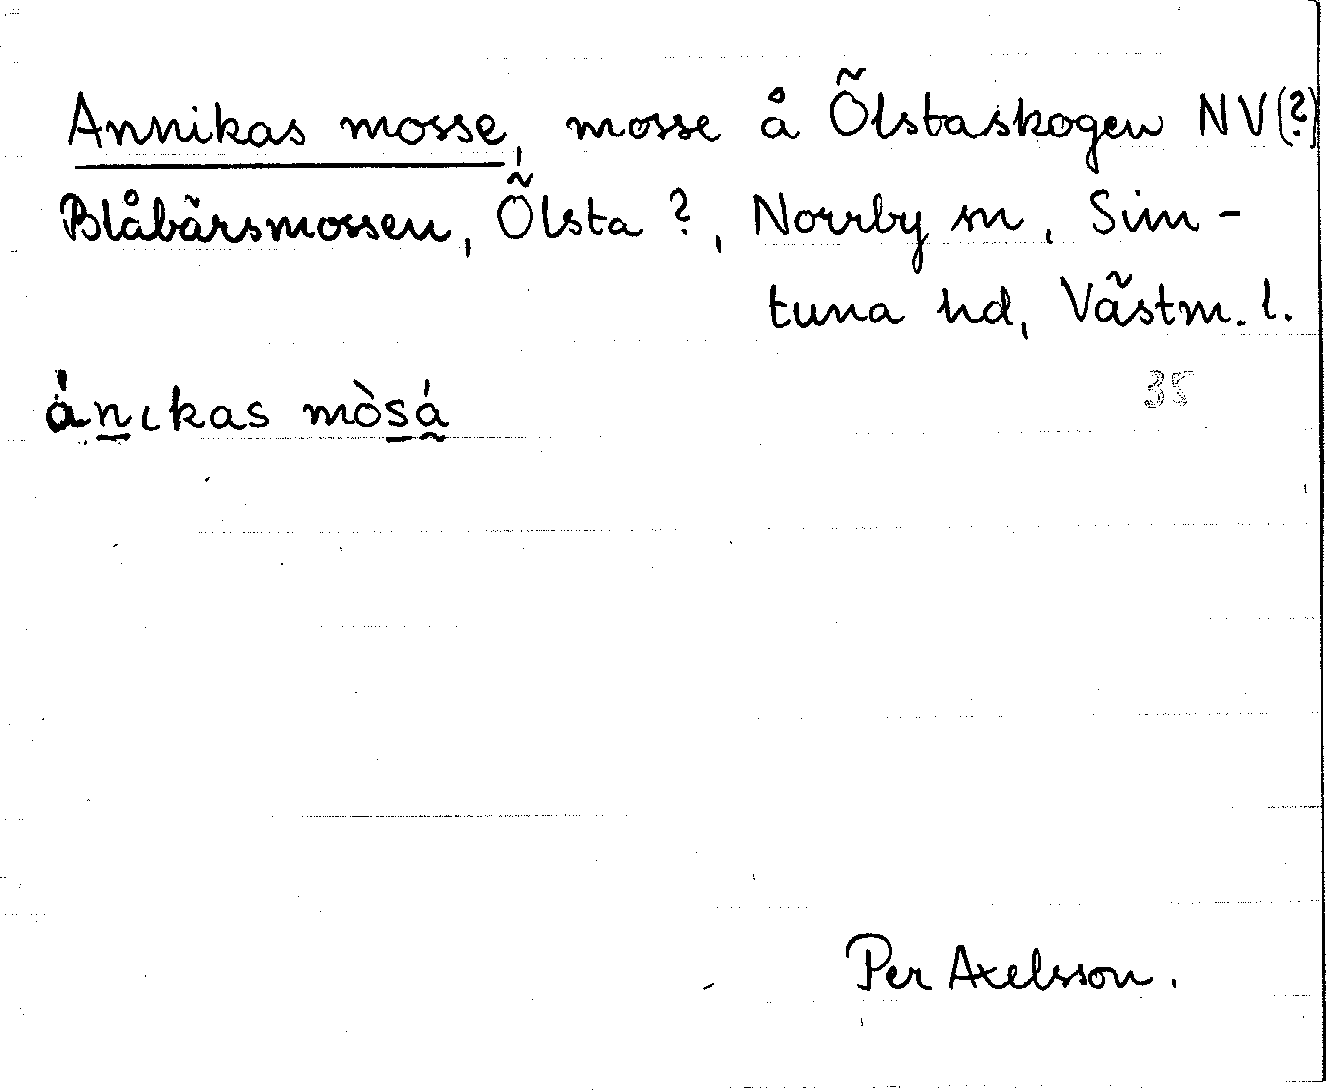 Annikas mosse, mosse å Ölstaskogen NV(?)
Blåbärsmossen, Ölsta ?, Norrby sn, Sim-
tuna hd, Västm. l.
35
ánıkas mòsá
Per Axelsson.